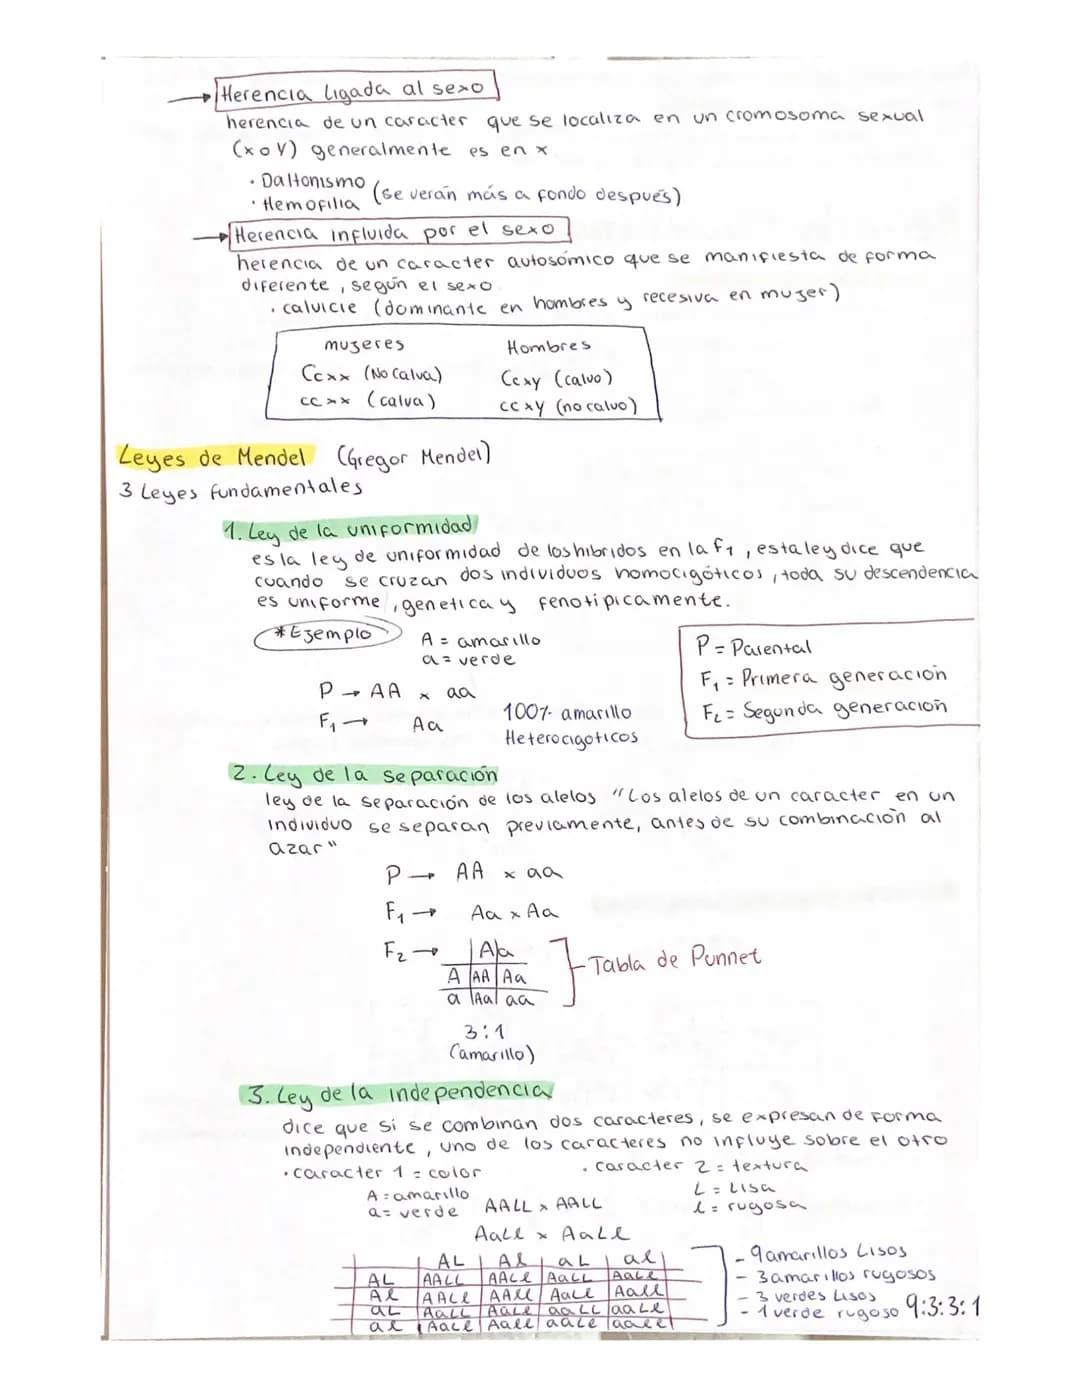 → Herencia ligada al sexo
herencia de un caracter que se localiza en un cromosoma sexual
(x o Y) generalmente es en x
· Daltonismo
· Hemofilia (se verán más a fondo después)
→ Herencia influida por el sexo
herencia de un caracter autosómico que se manifiesta de forma
diferente, según el sexo.
· calvicie (dominante en hombres y recesiva en mujer)
mujeres Hombres
Ccxx (No calva) Ccxy (calvo)
ccxx (calva) ccxy (no calvo)
Leyes de Mendel (Gregor Mendel)
3 Leyes fundamentales
1. Ley de la uniformidad
es la ley de uniformidad de los hibridos en la f1, esta ley dice que
cuando se cruzan dos individuos homocigóticos, toda su descendencia
es uniforme, genetica y fenotipicamente.
*Ejemplo
A = amarillo
a = verde
P → AA x aa
F1 → Aa
100% amarillo
Heterocigoticos
P = Parental
F1 = Primera generación
F2 = Segunda generación
2. Ley de la separación
ley de la separación de los alelos "Los alelos de un caracter en un
individuo se separan previamente, antes de su combinación al
azar"
P → AA x aa
F1 → Aa x Aa
F2 → A a
A AA Aa
a Aa aa
Tabla de Punnet
3:1
(amarillo)
3. Ley de la independencia
dice que si se combinan dos caracteres, se expresan de forma
independiente, uno de los caracteres no influye sobre el otro
· caracter 1 = color · caracter 2 = textura
A = amarillo L = Lisa
a = verde AALL x AALL l = rugosa
AaLl x AaLl
AL Al aL al
AL AALL AALl AaLL AaLl
Al AALl AAll AaLl Aall
aL AaLL AaLl aaLL aaLl
al AaLl Aall aaLl aall
- 9 amarillos Lisos
- 3 amarillos rugosos
- 3 verdes Lisos
- 1 verde rugoso 9:3:3:1